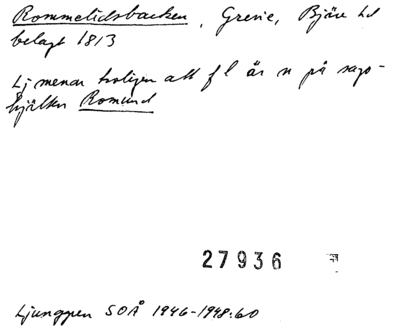 Rommelidsbacken, Grevie, Bjäre hd
belagt 1813
Lj menar troligen att f l är n på sago-
hjälten Romund
27936
Ljunggren SOÅ 1946-1948:60